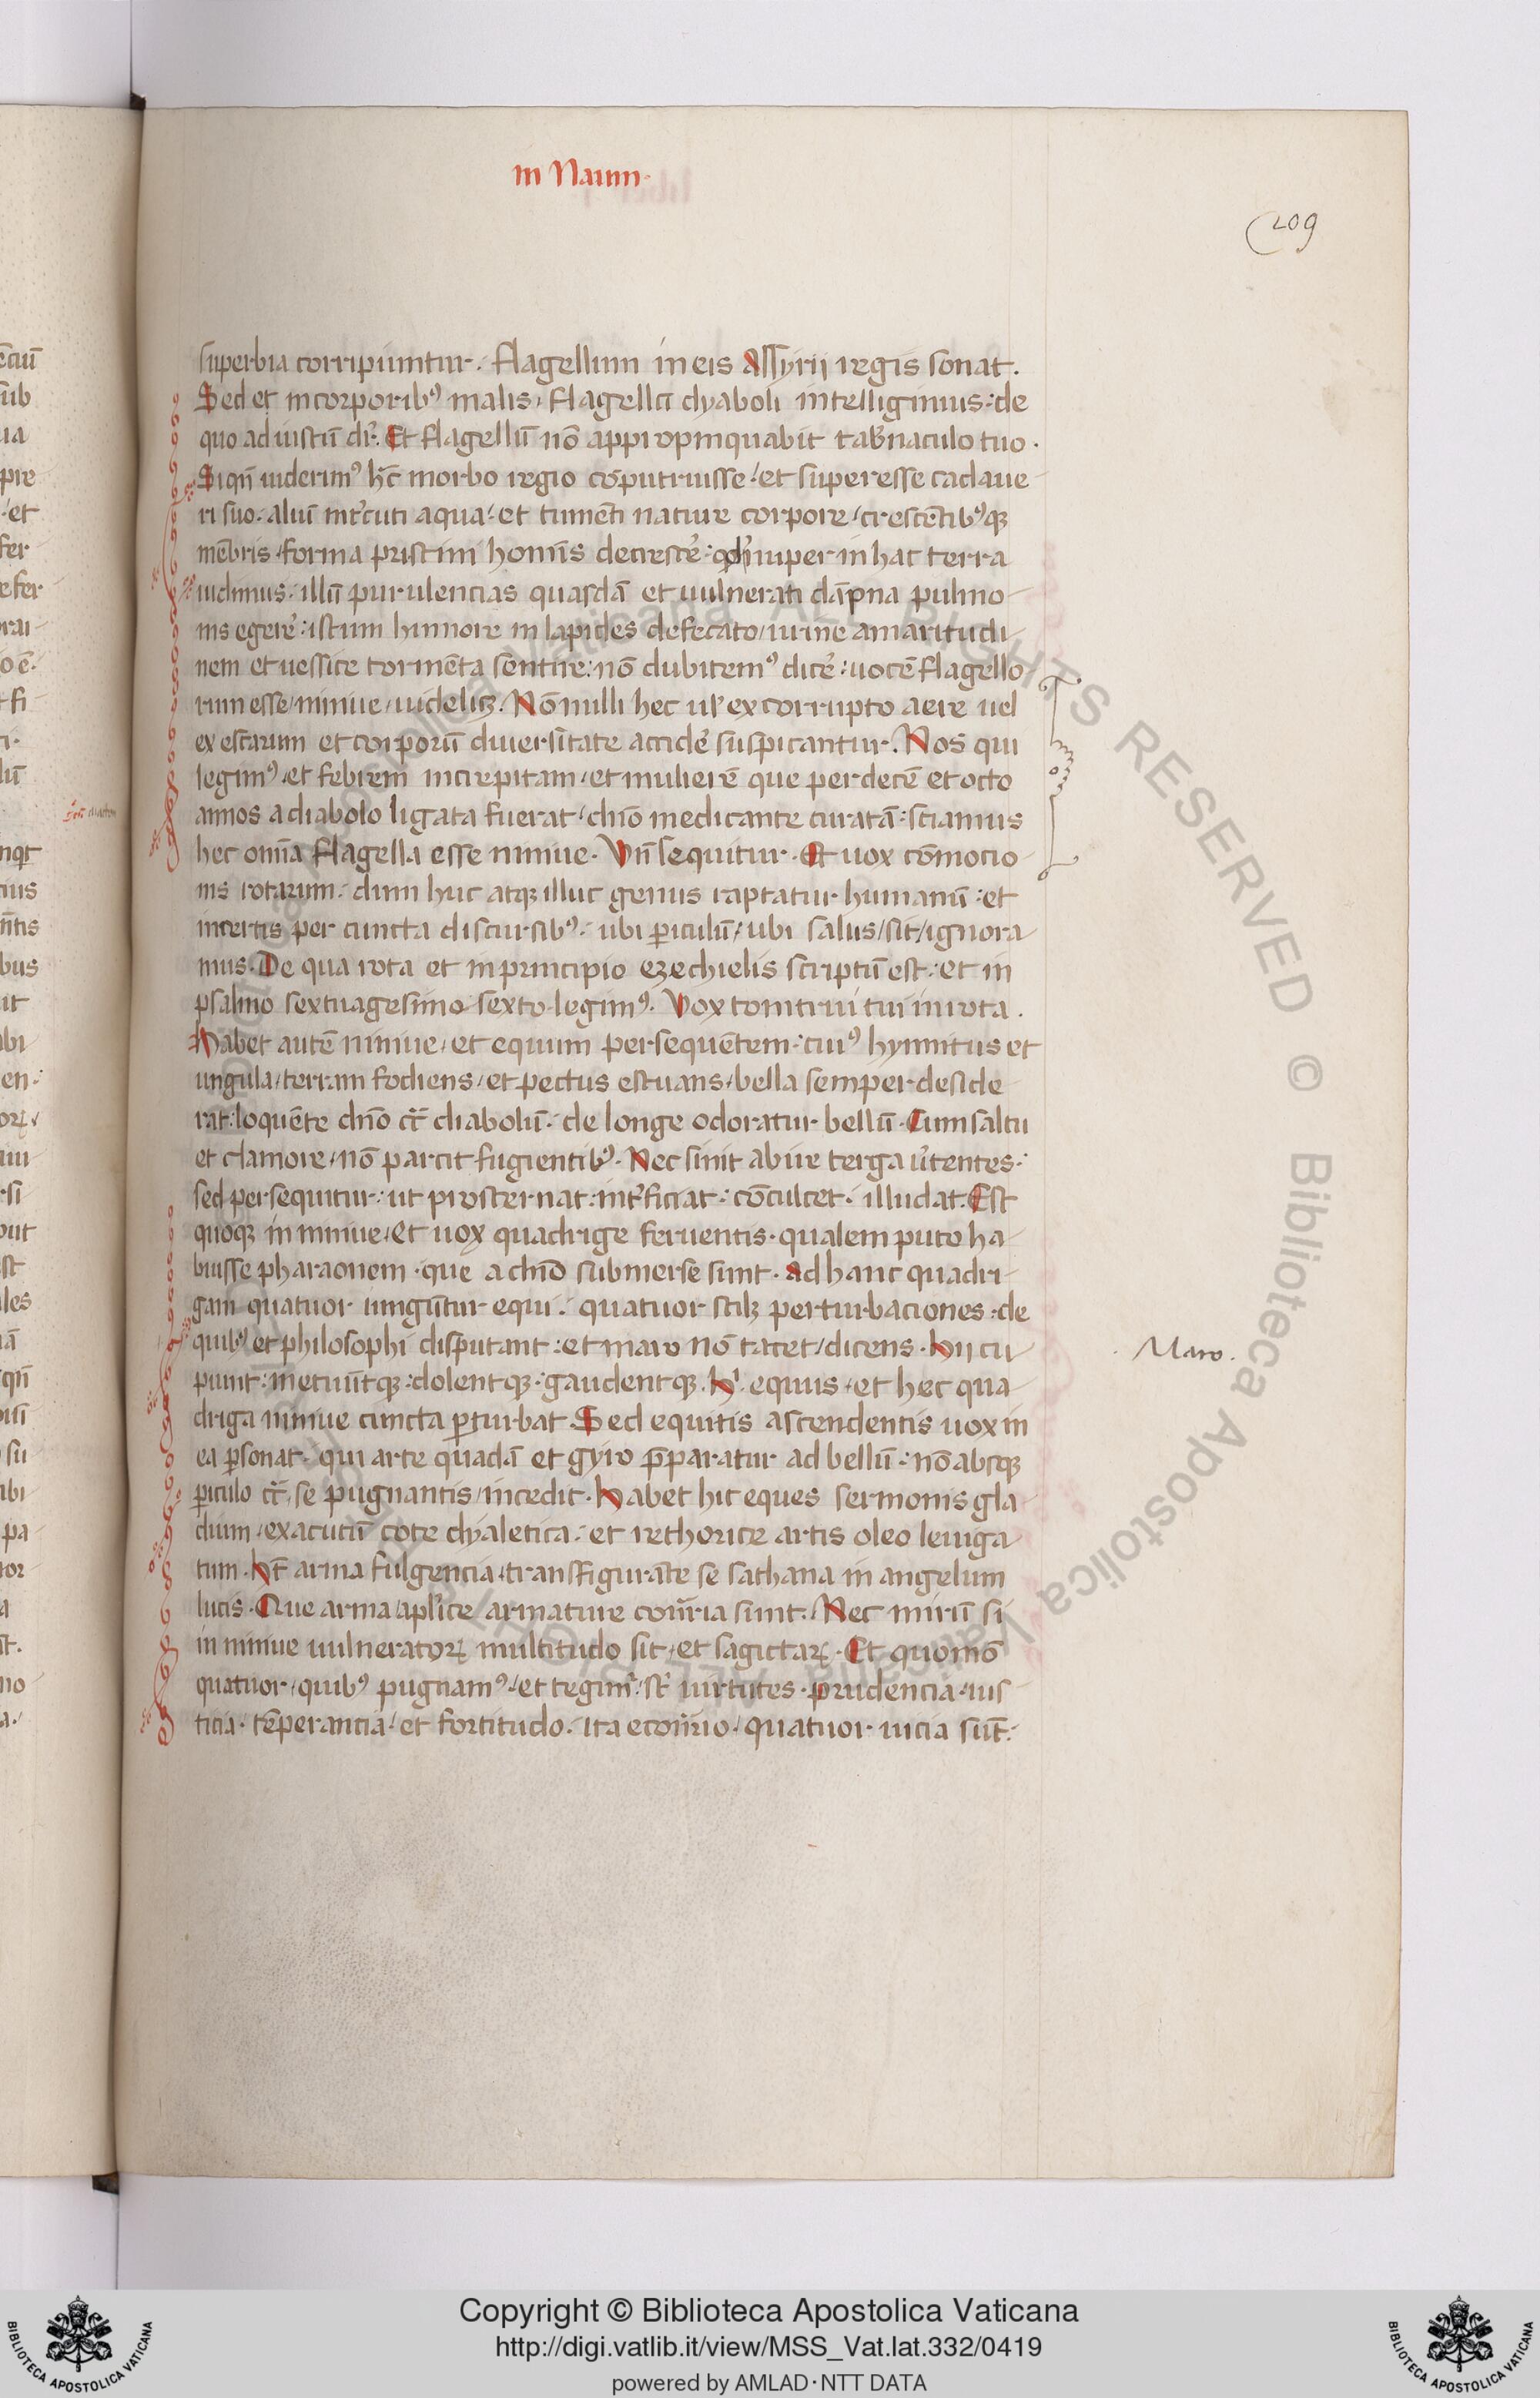 in Naum·
209
superbia corripiuntur. flagellum in eis Assyrii regis sonat.
Sed et in corporibꝰ malis, flagella dyaboli intelligimus: de
quo ad iustū dr̄. Et flagellū nō appropinquabit tab̓naculo tuo.
Siqn̄ uiderimꝰ hc̄ morbo regio cōputruisse, et superesse cadaue
ri suo. aliū int̓cuti aqua, et tumēti uature corpore, crescētibꝰqꝫ
mēbris, forma pristini hoīnis decresce᷑: nuper in hac terra
uidimus. illū purulencias quasdā et uulnerati dāpna pulmo
nis egere᷑: istum humore in lapides defecato, urine amaritudi
nem et uessice tormēta sentire: nō dubitemꝰ dice᷑: uocē flagello
rum esse, niniue, uidelicꝫ. Nōnulli hec ul᷑ ex corrupto aere uel
ex escarum et corporū diuersitate accide᷑ suspicantur. Nos qui
legimꝰ, et febrem increpitam, et mulierē que per decē et octo
annos a diabolo ligata fuerat, dn̄o medicante curatā: sciamus
hec omīa flagella esse niniue. Vn̄ sequitur. Et uox cōmocio
nis rotarum. dum huc atqꝫ illuc genus raptatur humanū: et
incertis per cuncta discursibꝰ. ubi ꝑiculū, ubi salus, sit, ignora
mus. De qua rota et in principio ezechielis scriptū est: et in
psalmo sextuagesimo sexto legimꝰ. Vox tonitrui tui in rota.
Habet autē niniue, et equum persequētem: cuiꝰ hynnitus et
ungula, terram fodiens, et pectus estuans, bella semper deside
rat: loquēte dn̄o ct̄ diabolū. de longe odoratur bellū. Cum saltu
et clamore, nō parcit fugientibꝰ. Nec sinit abire terga u̓tentes:
sed persequitur: ut prosternat: int̓ficiat: cōculcet. illudat. Est
quoqꝫ in niniue, et uox quadrige feruentis. qualem puto ha
buisse pharaonem. que a dn̄o submerse sunt. Ad hanc quadri
gam quatuor iungūtur equi. quatuor scilꝫ perturbaciones: de
quibꝰ et philosophi disputant: et maro nō tacet, dicens. Hii cu
Maro.
piunt: metuūtqꝫ: dolentqꝫ: gaudentqꝫ. Hi᷑ equus, et hec qua
driga niniue cuncta ꝑturbat. Sed equitis ascendentis uox in
ea ꝑsonat. qui arte quadā et gyro p̄paratur ad bellū: nō absqꝫ
ꝑiculo ct̄, se pugnantis, incedit. Habet hic eques sermonis gla
dium, exacutū cote dyaletica. et rethorice artis oleo leuiga
tum. Ht̄ arma fulgencia, transfigurāte se sathana in angelum
lucis. Que arma, apl̓ice armature cōtr̄ria sunt. Nec mirū si
in niniue uulneratorꝝ multitudo sit, et sagictarꝝ. Et quomō
quatuor, quibꝰ pugnamꝰ, et tegimꝰ, st̄ uirtutes. prudencia. ius
ticia. tēperancia, et fortitudo. ita econ̄rio, quatuor uicia sūt.
Copyright © Biblioteca Apostolica Vaticana
http://digi.vatlib.it/view/MSS_Vat.lat.332/0419
powered by AMLAD·NTT DATA